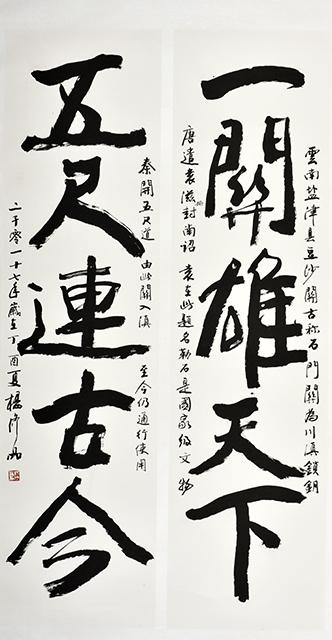 雲南盐津县豆沙關古称石門關為川滇鎖鑰
一關雄天下
唐遣袁滋封南詔 袁在此題名勒石是國家级文物
秦開五尺道 由此關入滇 至今仍通行使用
五尺連古今
二千零一十七年歲在丁酉夏楊